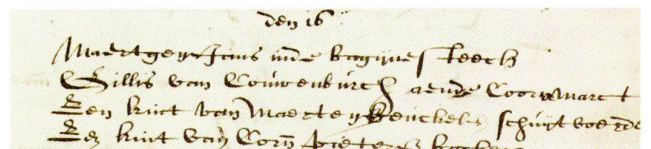 den 16
Maertgen Jans inde bagijnesteech
Gillis van Couwenburch aende Coornmarct
Een kint van Maerten Keuckels schuytvoerder
Een kint van Corn pieters